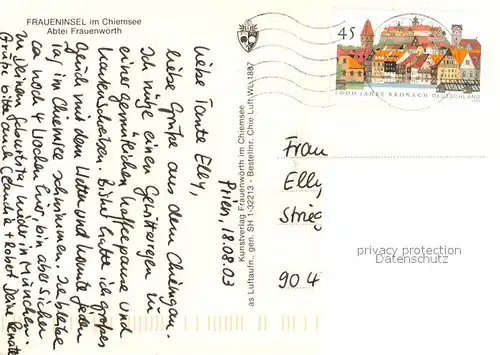 FRAUENINSEL im Chiemsee
Abtei Frauenwörth
Prien, 18.08.03
Liebe Tante Elly,
liebe Grüße aus dem Chiemgau.
Ich nutze einen Gewitterregen zu
einer gemütlichen Kaffeepause und
Kartenschreiben. Bisher hatte ich großes
Glück mit dem Wetter und konnte jeden
Tag im Chiemsee schwimmen. Ich bleibe
ca noch 4 Wochen hier, bin aber sicher
zu Deinem Geburtstag wieder in München.
Grüße bitte auch Claudia + Robert Deine Renate
Kunstverlag Frauenwörth im Chiemsee
as Luftaufn., gen. SH 1-32213 - Bestellnr. Chie.Luft.WL1887
45
1000 JAHRE KRONACH DEUTSCHLAND
Frau
Elly
904
privacy protection
Datenschutz